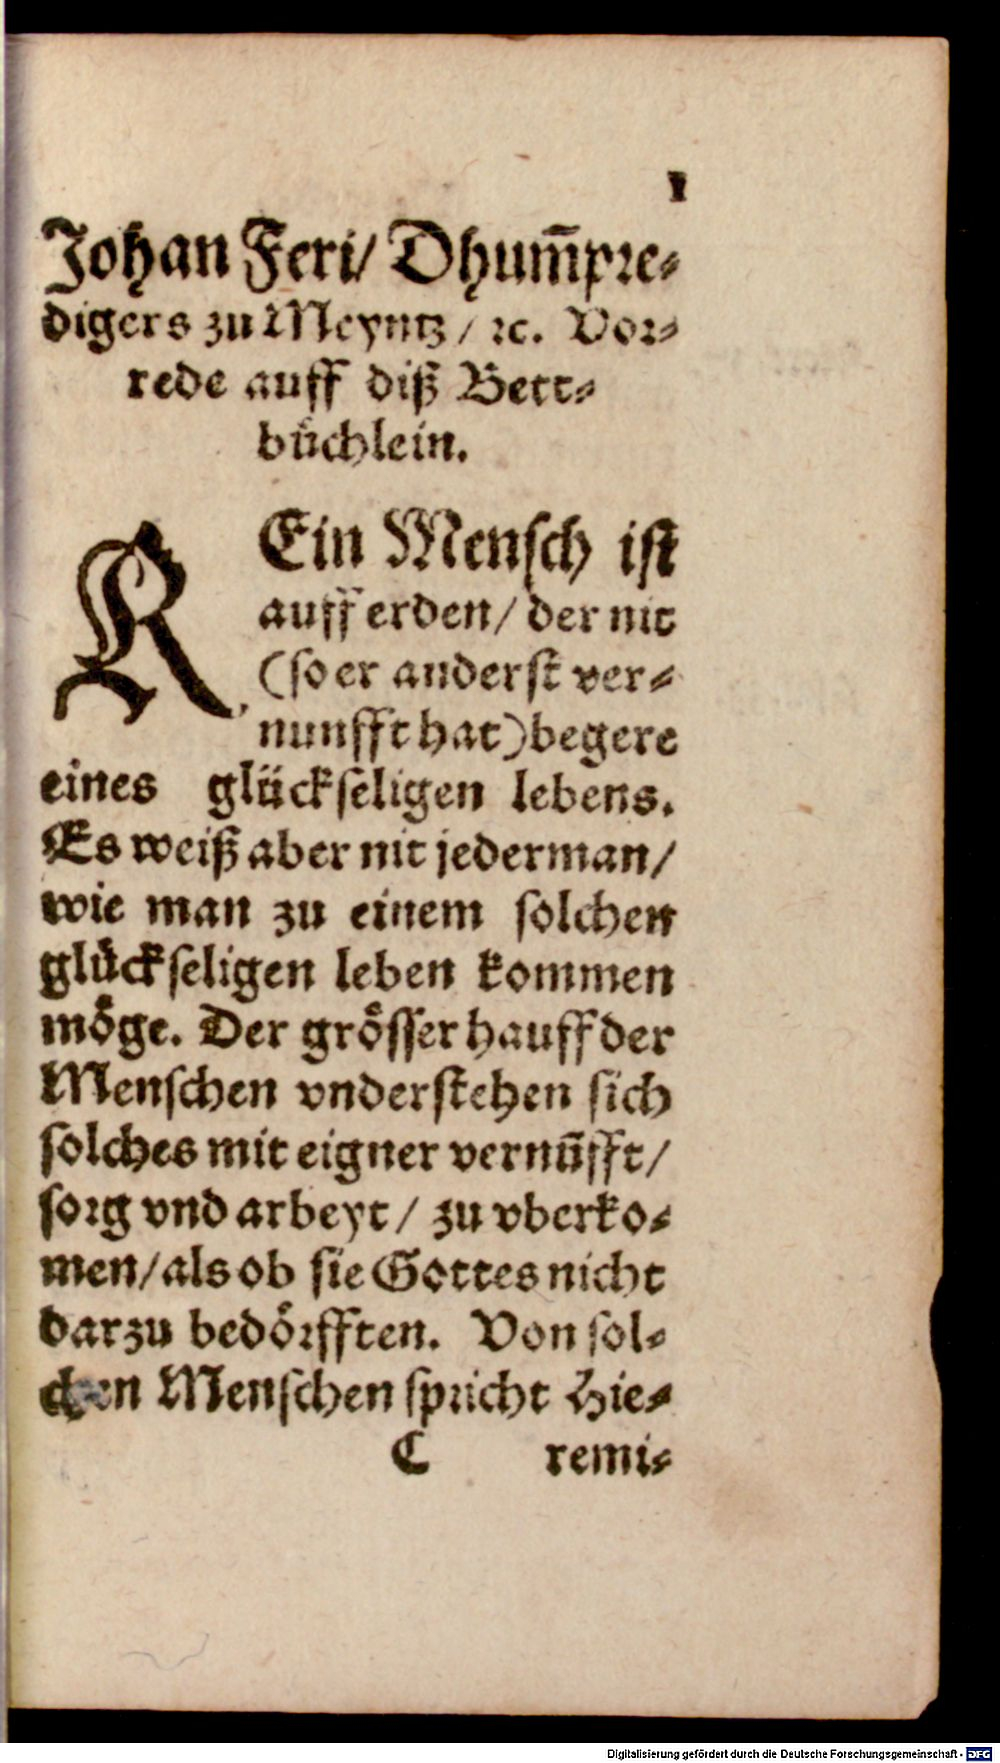 1
Johan Feri/ Dhum̄pre⸗
digers zu Meyntz / ꝛc. Vor⸗
rede auff diß Bett⸗
buͤchlein.
KEin Mensch ist
auff erden/ der nit
(so er anderst ver⸗
nunfft hat) begere
eines glückseligen lebens.
Es weiß aber nit jederman/
wie man zu einem solchen
gluͤckseligen leben kommen
moͤge. Der groͤsser hauff der
Menschen vnderstehen sich
solches mit eigner vernūfft/
sorg vnd arbeyt / zu vberko⸗
men/ als ob sie Gottes nicht
darzu bedoͤrfften. Von sol⸗
chen Menschen spricht Hie⸗
C remi⸗
Digitalisierung gefördert durch die Deutsche Forschungsgemeinschaft - DFG